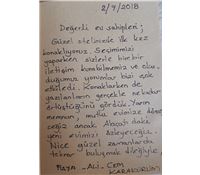 2/4/2018
Değerli ev sahipleri;
Güzel sitelinizde ilk kez
konaklıyoruz. Seçimimizi
yaparken sizlerle birebir
iletişim kurabilmemiz ve oku-
duğumuz yorumlar bizi çok
etkiledi. Konaklarken de
yazılanların gerçekle ne kadar
örtüştüğünü gördük. Yarın
memnun, mutlu evimize döne-
ceğiz ancak Alaçatı'daki
yeni evimizi özleyeceğiz.
Nice güzel zamanlarda
tekrar buluşmak dileğiyle,
Maya - Ali - Cem